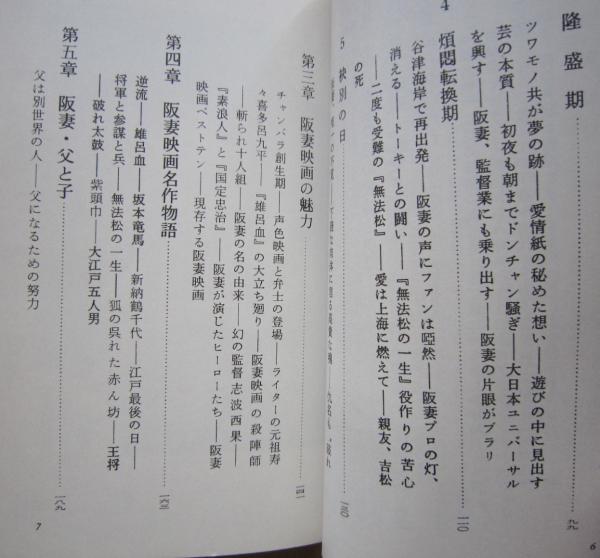 隆盛期
九九
ツワモノ共が夢の跡――愛情紙の秘めた想い――遊びの中に見出す
芸の本質――初夜も朝までドンチャン騒ぎ――大日本ユニバーサル
を興す――阪妻、監督業にも乗り出す――阪妻の片眼がブラリ
4 煩悶転換期
一一〇
谷津海岸で再出発――阪妻の声にファンは啞然――阪妻プロの灯、
消える――トーキーとの闘い――『無法松の一生』役作りの苦心
――二度も受難の『無法松』――愛は上海に燃えて――親友、吉松
の死
5 袂別の日
一三〇
6
第三章 阪妻映画の魅力
一四一
チャンバラ創生期――声色映画と弁士の登場――ライターの元祖寿
々喜多呂九平――『雄呂血』の大立ち廻り――阪妻映画の殺陣師
――斬られ十人組――阪妻の名の由来――幻の監督志波西果――
『素浪人』と『国定忠治』――阪妻が演じたヒーローたち――阪妻
映画ベストテン――現存する阪妻映画
第四章 阪妻映画名作物語
一六三
逆流――雄呂血――坂本竜馬――新納鶴千代――江戸最後の日――
将軍と参謀と兵――無法松の一生――狐の呉れた赤ん坊――王将
――破れ太鼓――紫頭巾――大江戸五人男
第五章 阪妻・父と子
一八九
父は別世界の人――父になるための努力
7